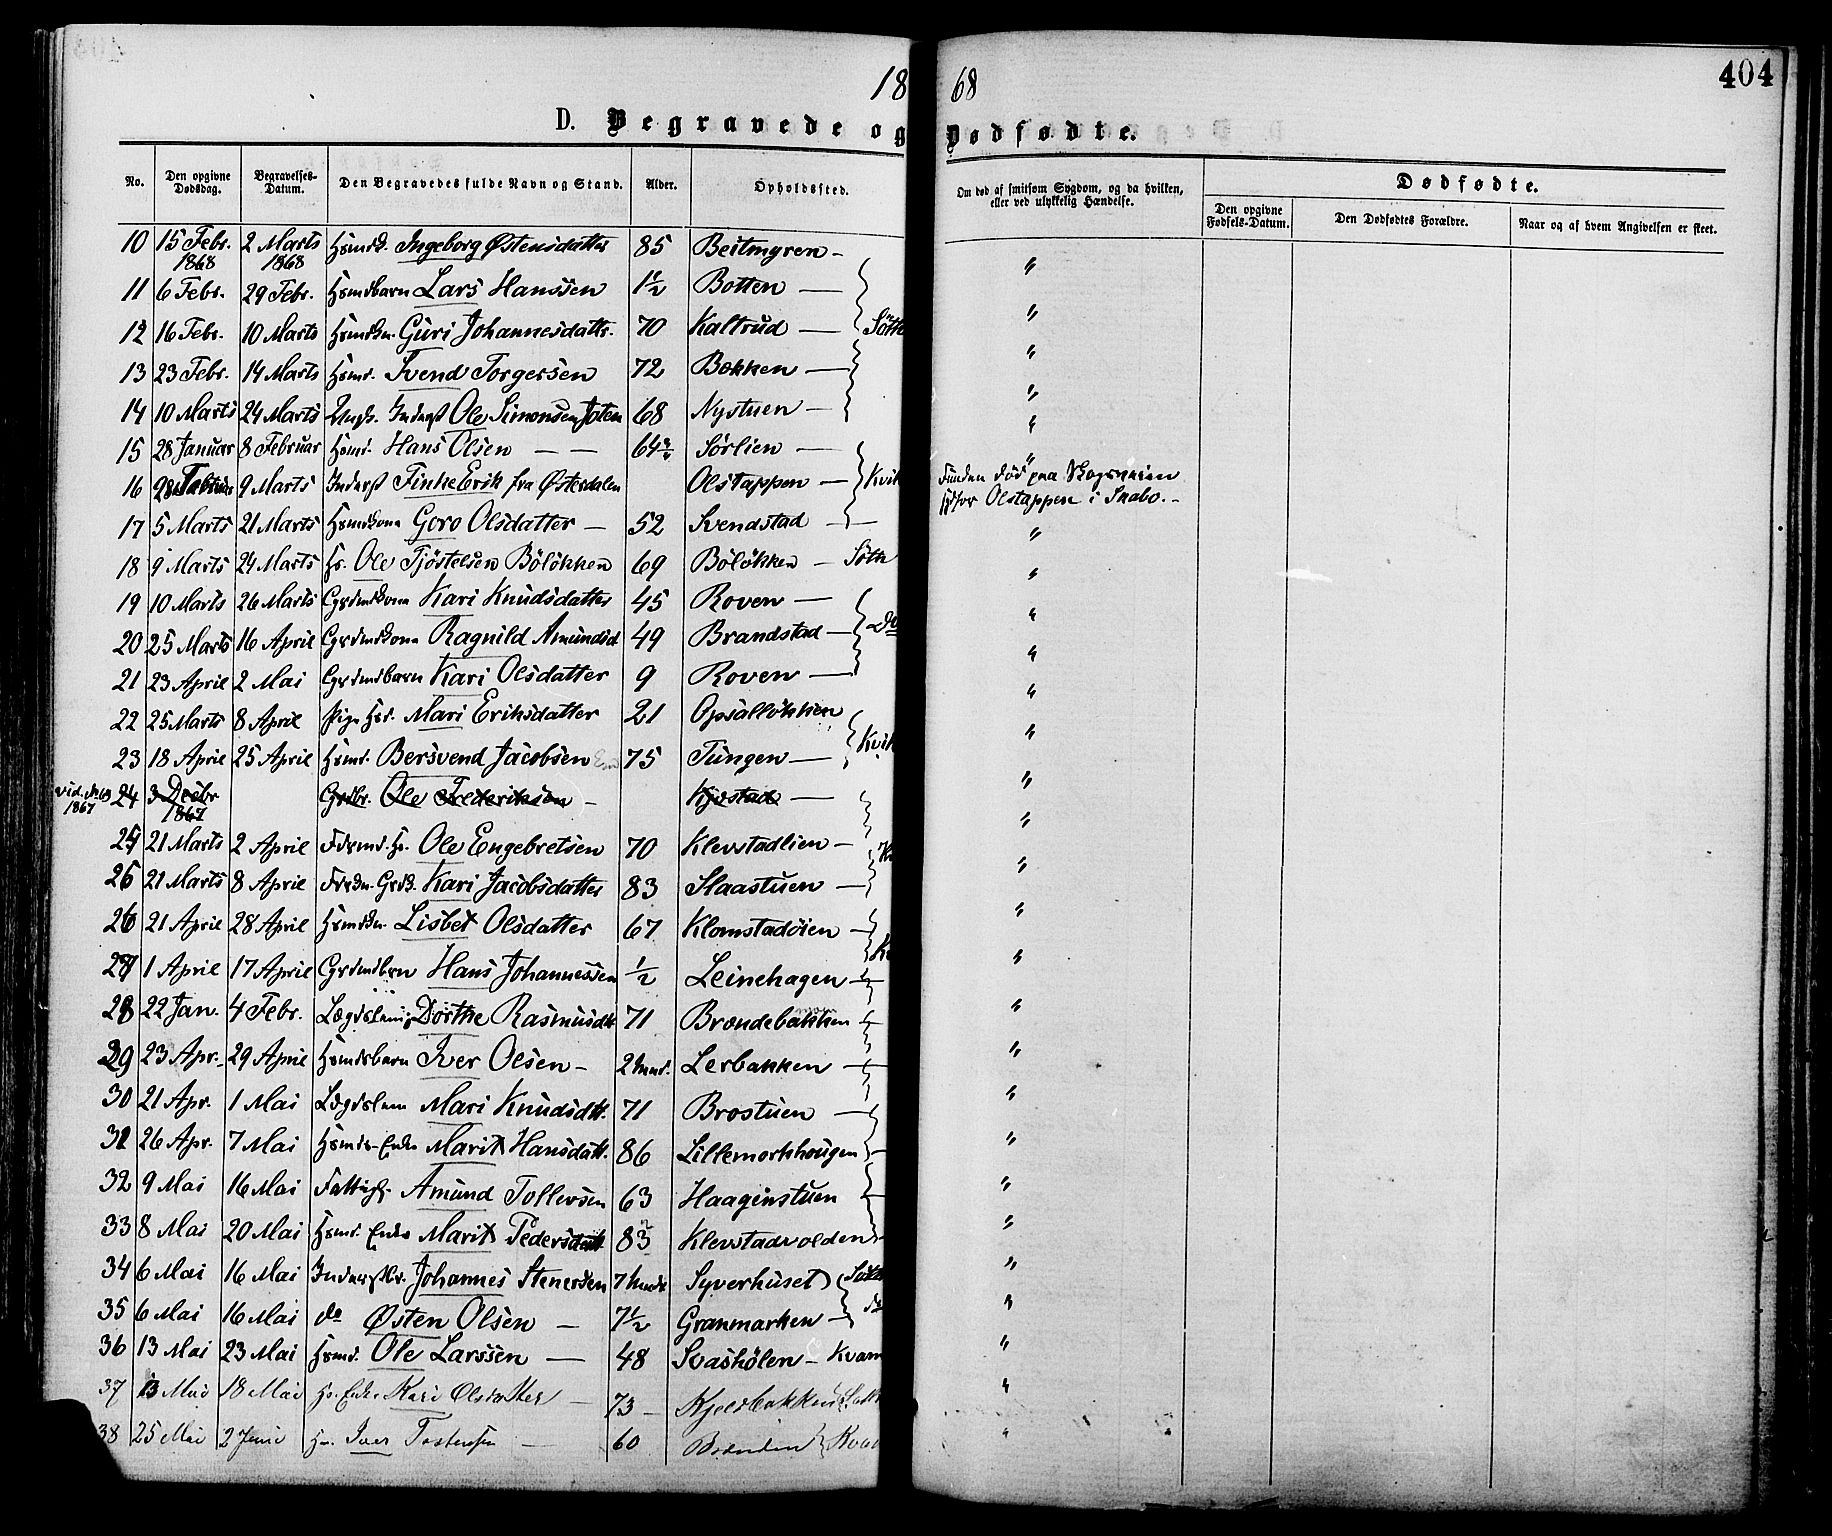 18 68
404
D. Begravede og Dødfødte.
No. Den opgivne Dødsdag. Begravelses-Datum. Den Begravedes fulde Navn og Stand. Alder. Opholdssted. Om død af smitsom Sygdom, og da hvilken, eller ved ulykkelig Hændelse. Dødfødte.
Den opgivne Fødsels-Datum. Den Dødfødtes Forældre. Naar og af hvem Angivelsen er skeet.
10 15 Febr. 1868 2 Marts 1868 Ingeborg Østensdatter 85 Beitmyren — "
11 6 Febr. 29 Febr. Hsmdbarn Lars Hanssen 1½ Botten — "
12 16 Febr. 10 Marts Hsmdkn. Guri Johannesdattr. 70 Kaltrud — Söth "
13 23 Febr. 14 Marts Hsmd. Svend Torgersen 72 Bækken — "
14 10 Marts 24 Marts Ungk. Inderst Ole Simonsen Joten 68 Nystuen — "
15 28 Januar 8 Februar Hsmd. Hans Olsen — — 64¾ Sörlien — "
16 28 Februar 9 Marts Inderst Finke Erik fra Østerdalen Olstappen — Kvik Funden død paa Skogsveien
sydfor Olstappen i Skabo. -
17 5 Marts 21 Marts Hsmdkona Goro Olsdatter — 52 Svendstad — "
18 9 Marts 24 Marts Hs. Ole Tjöstelsen Bölökken 69 Bölökken — Söth "
19 10 Marts 26 Marts Grdmdkona Kari Knudsdatter 45 Roven — "
20 25 Marts 16 April Grdmdkona Ragnild Amundsd 49 Brandstad — Do "
21 23 April 2 Mai Grdmdbarn Kari Olsdatter 9 Roven — "
22 25 Marts 8 April Pige Hsd. Mari Eriksdatter 21 Opsallökken "
23 18 April 25 April Hsmd. Bersvend Jacobsen 75 Tungen — Kvik "
vid. No 63 1867 24 3 Decbr 1867 Grdbr. Ole Frederiksen - Kjøstad — "
25 21 Marts 2 April Fdrmd. Hs. Ole Engebretsen 70 Klevstadlien — "
26 21 Marts 8 April Kari Jacobsdatter 83 Slaastuen — "
26 21 April 28 April Hsmdkn. Lisbet Olsdatter 67 Klomstadöien — "
27 1 April 17 April Grdmdbrn Hans Johannessen ½ Leinehagen — "
28 22 Jan. 4 Febr. Lægdslem Dorthe Rasmusdt 71 Brændebakken "
29 23 Apr. 29 April Hsmdsbarn Iver Olsen - 2 Lerbakken — "
30 21 Apr. 1 Mai Lægdslem Mari Knudsdtt. 71 Brostuen — "
31 26 Apr. 7 Mai Hsmds-Enke Marit Hansdatt. 86 Lillemorkhougen "
32 9 Mai 16 Mai Fattigl. Amund Tollevsen 63 Haaginstuen "
33 8 Mai 20 Mai Hsmd. Enke Marit Pedersdatt 83 Klevstadvolden "
34 6 Mai 16 Mai Inderstbr. Johannes Stenersen 7 Syverhuset "
35 6 Mai 16 Mai do Østen Olsen — 7½ Granmarken — "
36 13 Mai 23 Mai Hsmd. Ole Larssen — 48 Svashölen - Kvam "
37 13 Mai 18 Mai Hs. Enke Kari Olsdatter — 73 — Kjeldbakken "
38 25 Mai 2 Juni Hs. Iver Tostensen — 60 Brænden Kvam "